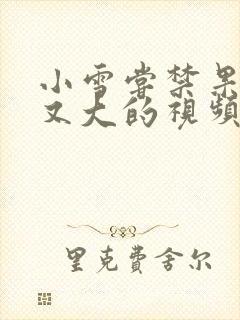 小雪尝禁果
又大的視頻
里克費舍尔